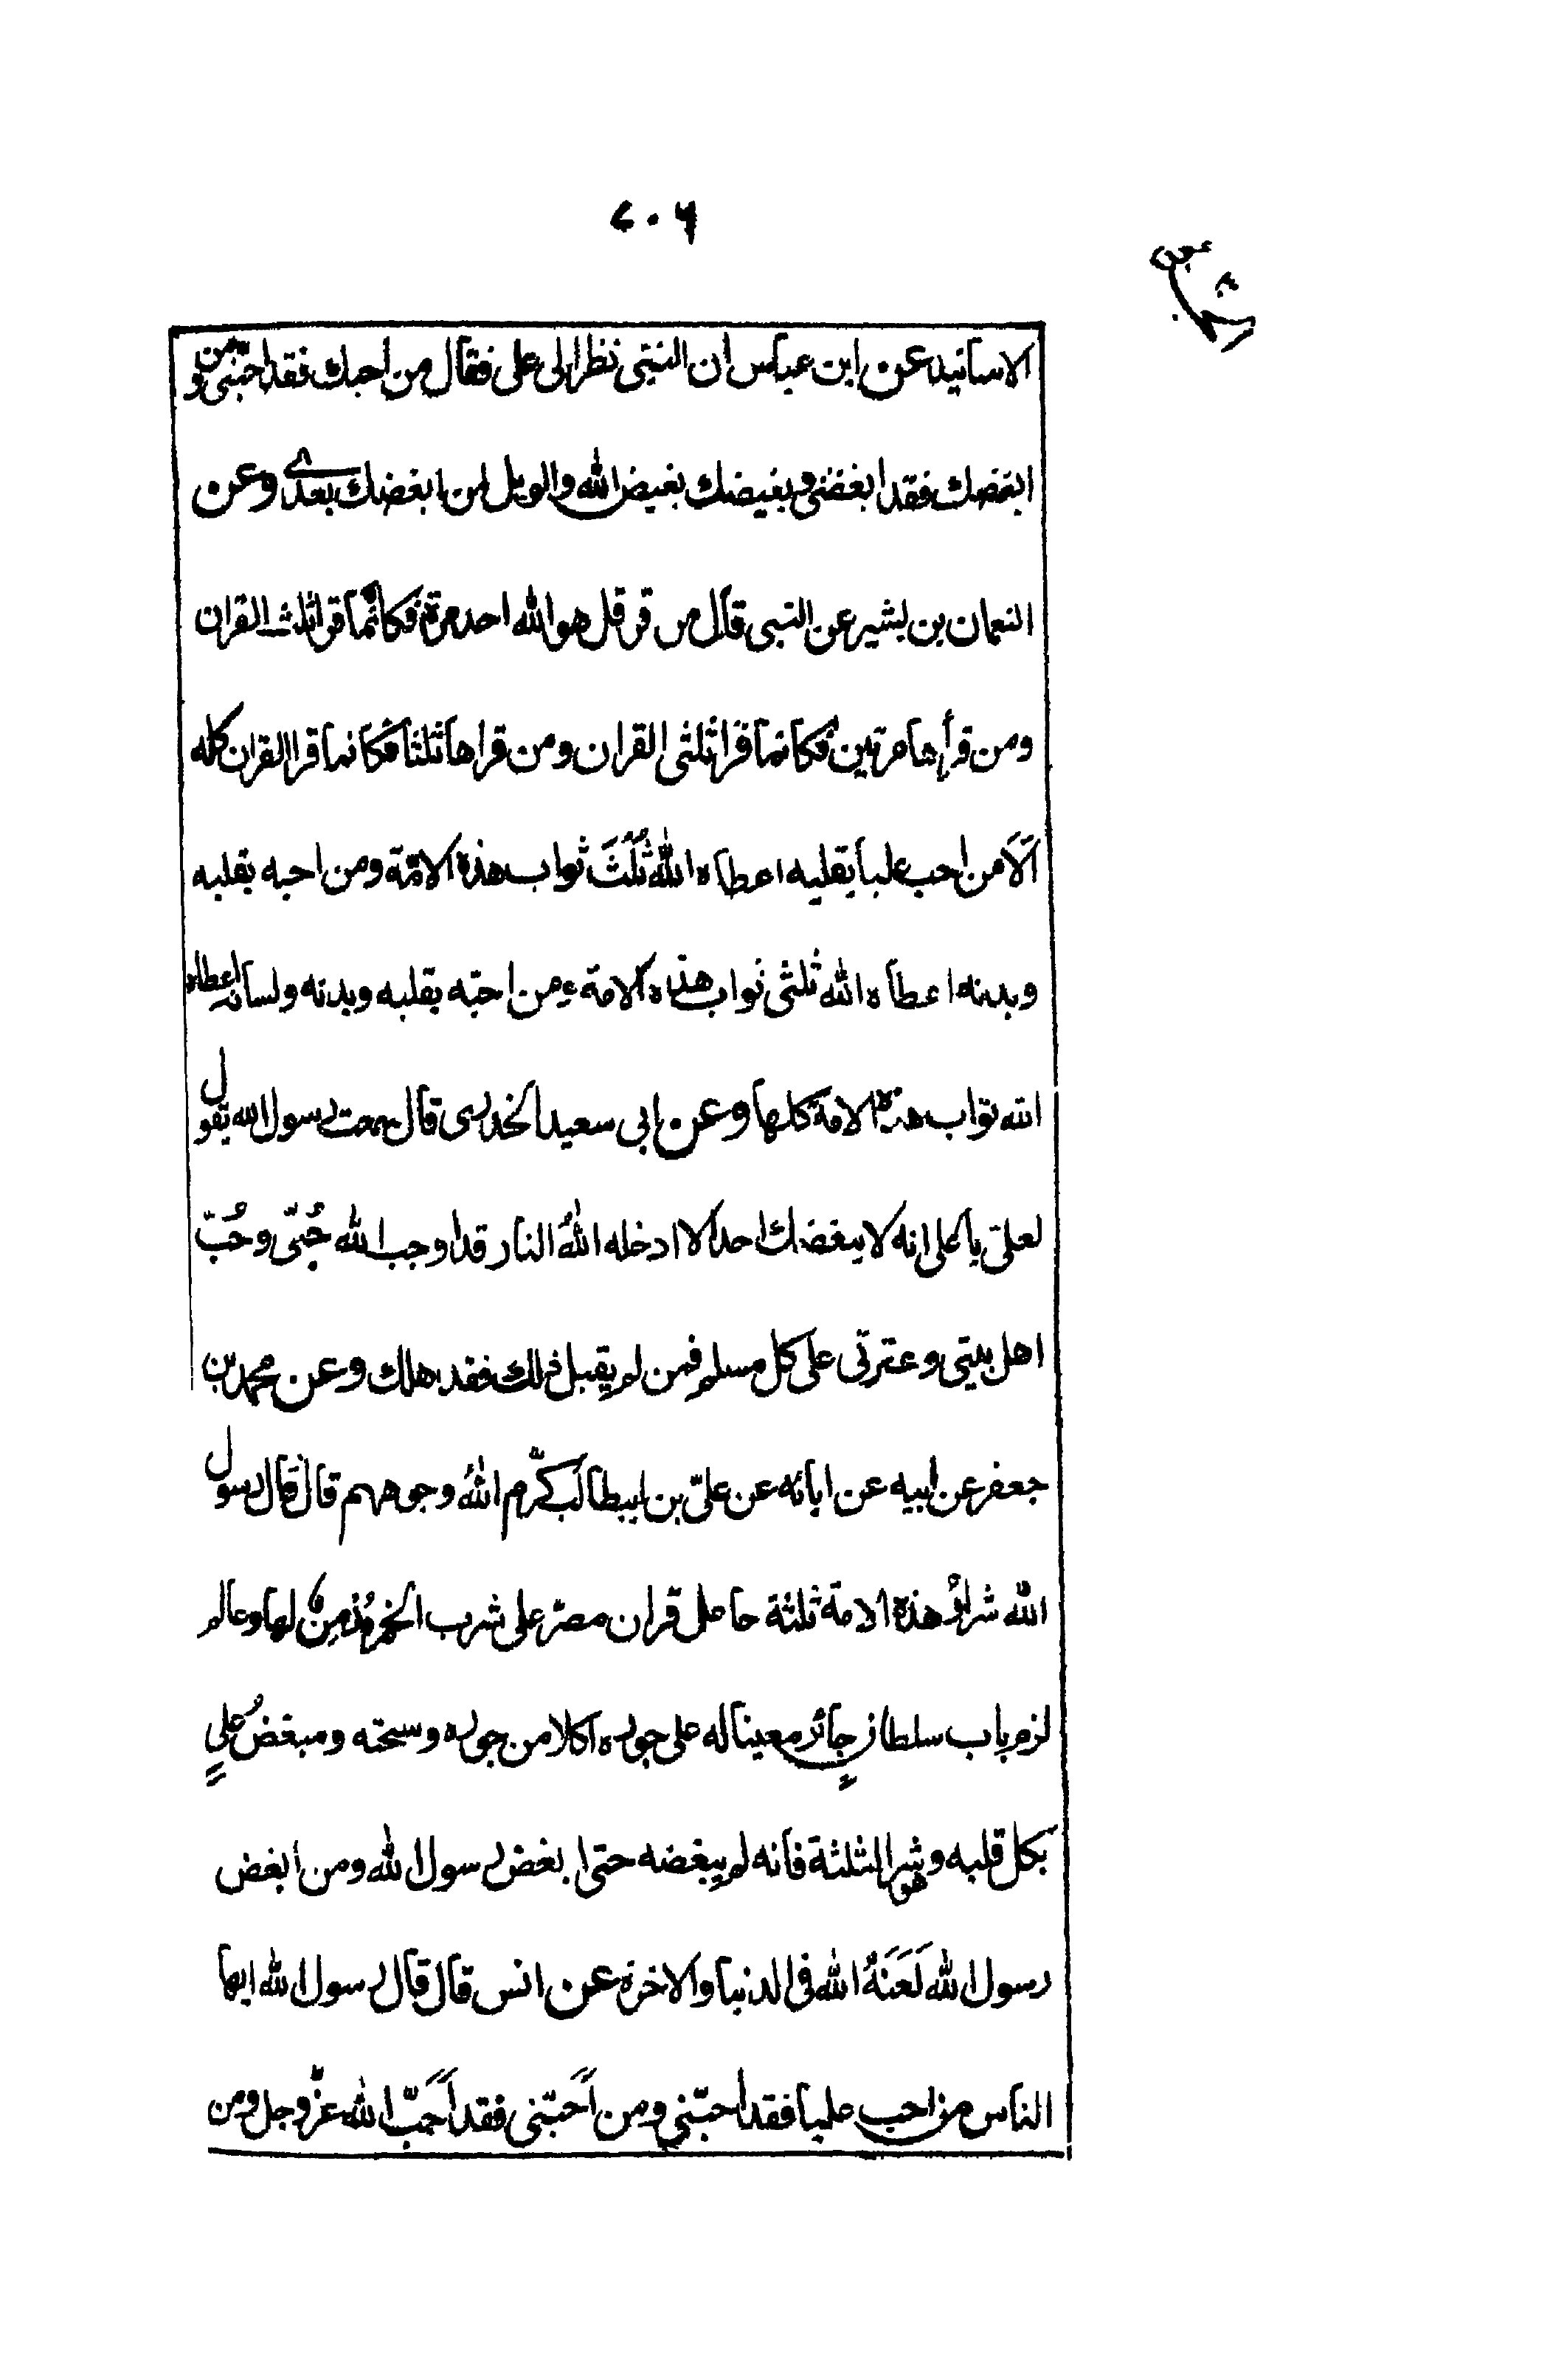 ٢٠٦
الاسانيد عن ابن عباس ان النبيّ نظر الى على فقال من احبك فقد احبّنى ومن
ابغضك فقد ابغضنى وبغيضك بغيض الله والويل لمن ابغضك بعدى وعن
النعمان بن بشير عن النبى قال من قر قل هو الله احد مرة فكانّما قرا ثلث القران
ومن قرأها مرتين فكانما قرا ثلثى القران ومن قراها ثلثا فكانما قرا القران كله
اَلَا من احب عليا بقلبه اعطاه اللهُ ثُلُثَ ثواب هذه الامّة ومن احبه بقلبه
وبدنه اعطاه الله ثلثى ثواب هذه الامة ومن احبّه بقلبه وبدنه ولسانه اعطاه
الله ثواب هذه الامة كلها وعن ابى سعيد الخدرى قال سمعت رسول الله يقول
لعلىّ يا على انه لا يبغضك احد الا ادخله اللهُ النار قد اوجب الله حُبّى وحُبّ
اهل بيتى وعترتى على كل مسلم فمن لم يقبل ذلك فقد هلك وعن محمد بن
جعفر عن ابيه عن ابائه عن علىّ بن ابيطالب كرّم اللهُ وجوههم قال قال رسول
الله شرارُ هذه الامة ثلثة حامل قران مصرّ على شرب الخمر مُدْمِنٌ لها وعالم
لزم باب سلطان جائرٍ معينا له على جوره اكلا من جوره وسحته ومبغضُ علىٍ
بكل قلبه وهو شر الثلثة فانه لم يبغضه حتى ابغض رسول الله ومن ابغض
رسول الله لَعَنَهُ الله فى الدنيا والاخرة عن انس قال قال رسول الله ايها
الناس من احب عليا فقد احبّنى ومن اَحبّنى فقد اَحَبّ الله عزّ وجل ومن